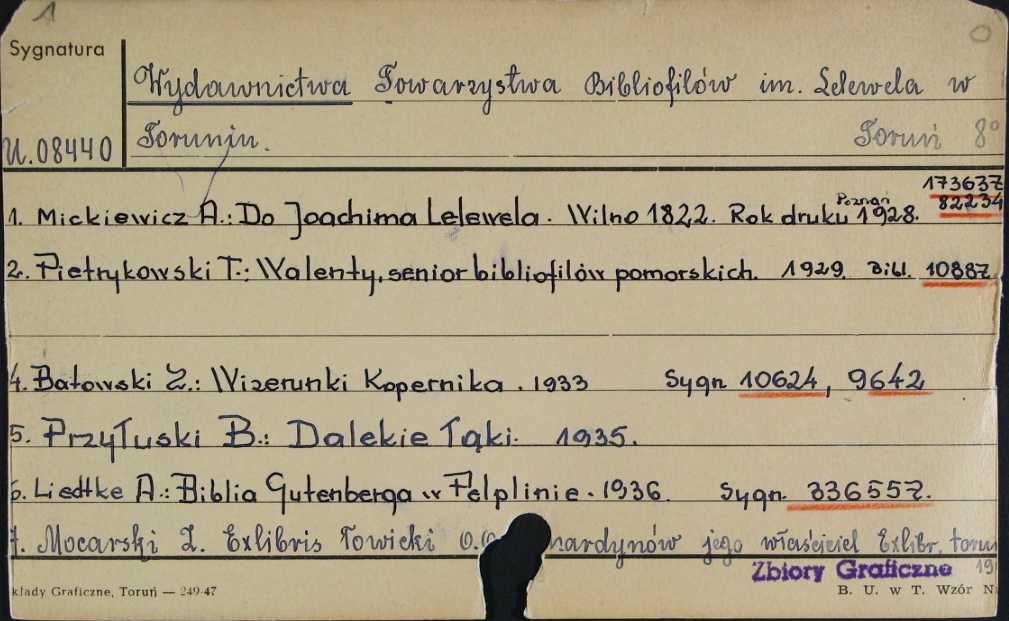 1
Sygnatura
Wydawnictwa Towarzystwa Bibliofilów im. Lelewela w
U.08440 Toruniu. Toruń 8°
173637
1. Mickiewicz A.: Do Joachima Lelewela. Wilno 1822. Rok druku Poznań 1928. 82234
2. Pietrykowski T.: Walenty, senior bibliofilów pomorskich. 1929. Bibl. 10887
4. Batowski Z.: Wizerunki Kopernika. 1933 Sygn 10624, 9642
5. Przyłuski B.: Dalekie łąki. 1935.
6. Liedtke A.: Biblia Gutenberga w Pelplinie. 1936. Sygn. 336557.
7. Mocarski Z. Exlibris łowicki nardynów jego właściciel Exlibr. toruń
Zbiory Graficzne 19
kłady Graficzne, Toruń — 249-47 B. U. w T. Wzór N